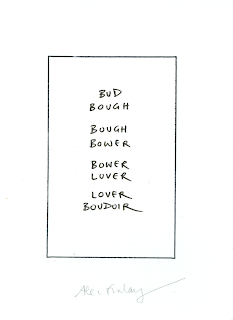 BUD
BOUGH
BOUGH
BOWER
BOWER
LOVER
LOVER
BOUDOIR
Alec Finlay